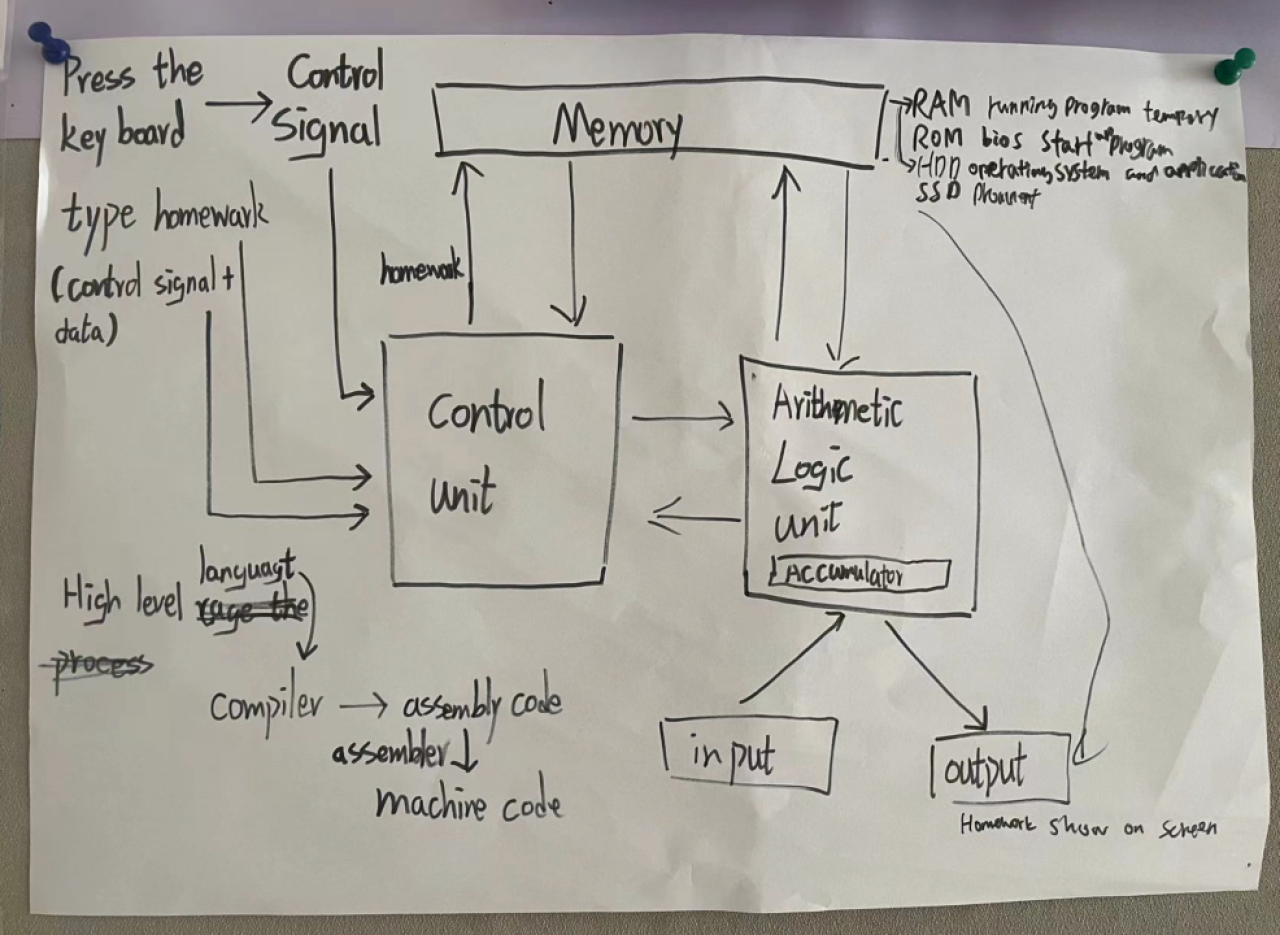 Press the
key board
Control
Signal
type homewark
(control signal +
data)
Memory
RAM running program tempory
ROM bios start up program
HDD operating system and application
SSD
homework
Control
unit
Arithmetic
Logic
unit
Accumulator
High level languagt
process
compiler → assembly code
assembler
machine code
input
output
Homework show on screen